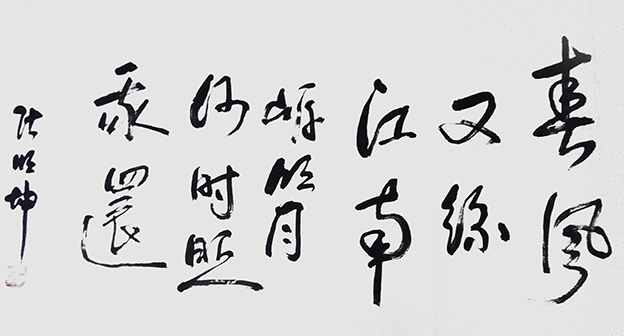 春風
又綠
江南
岸明月
何时照
我還
张明坤